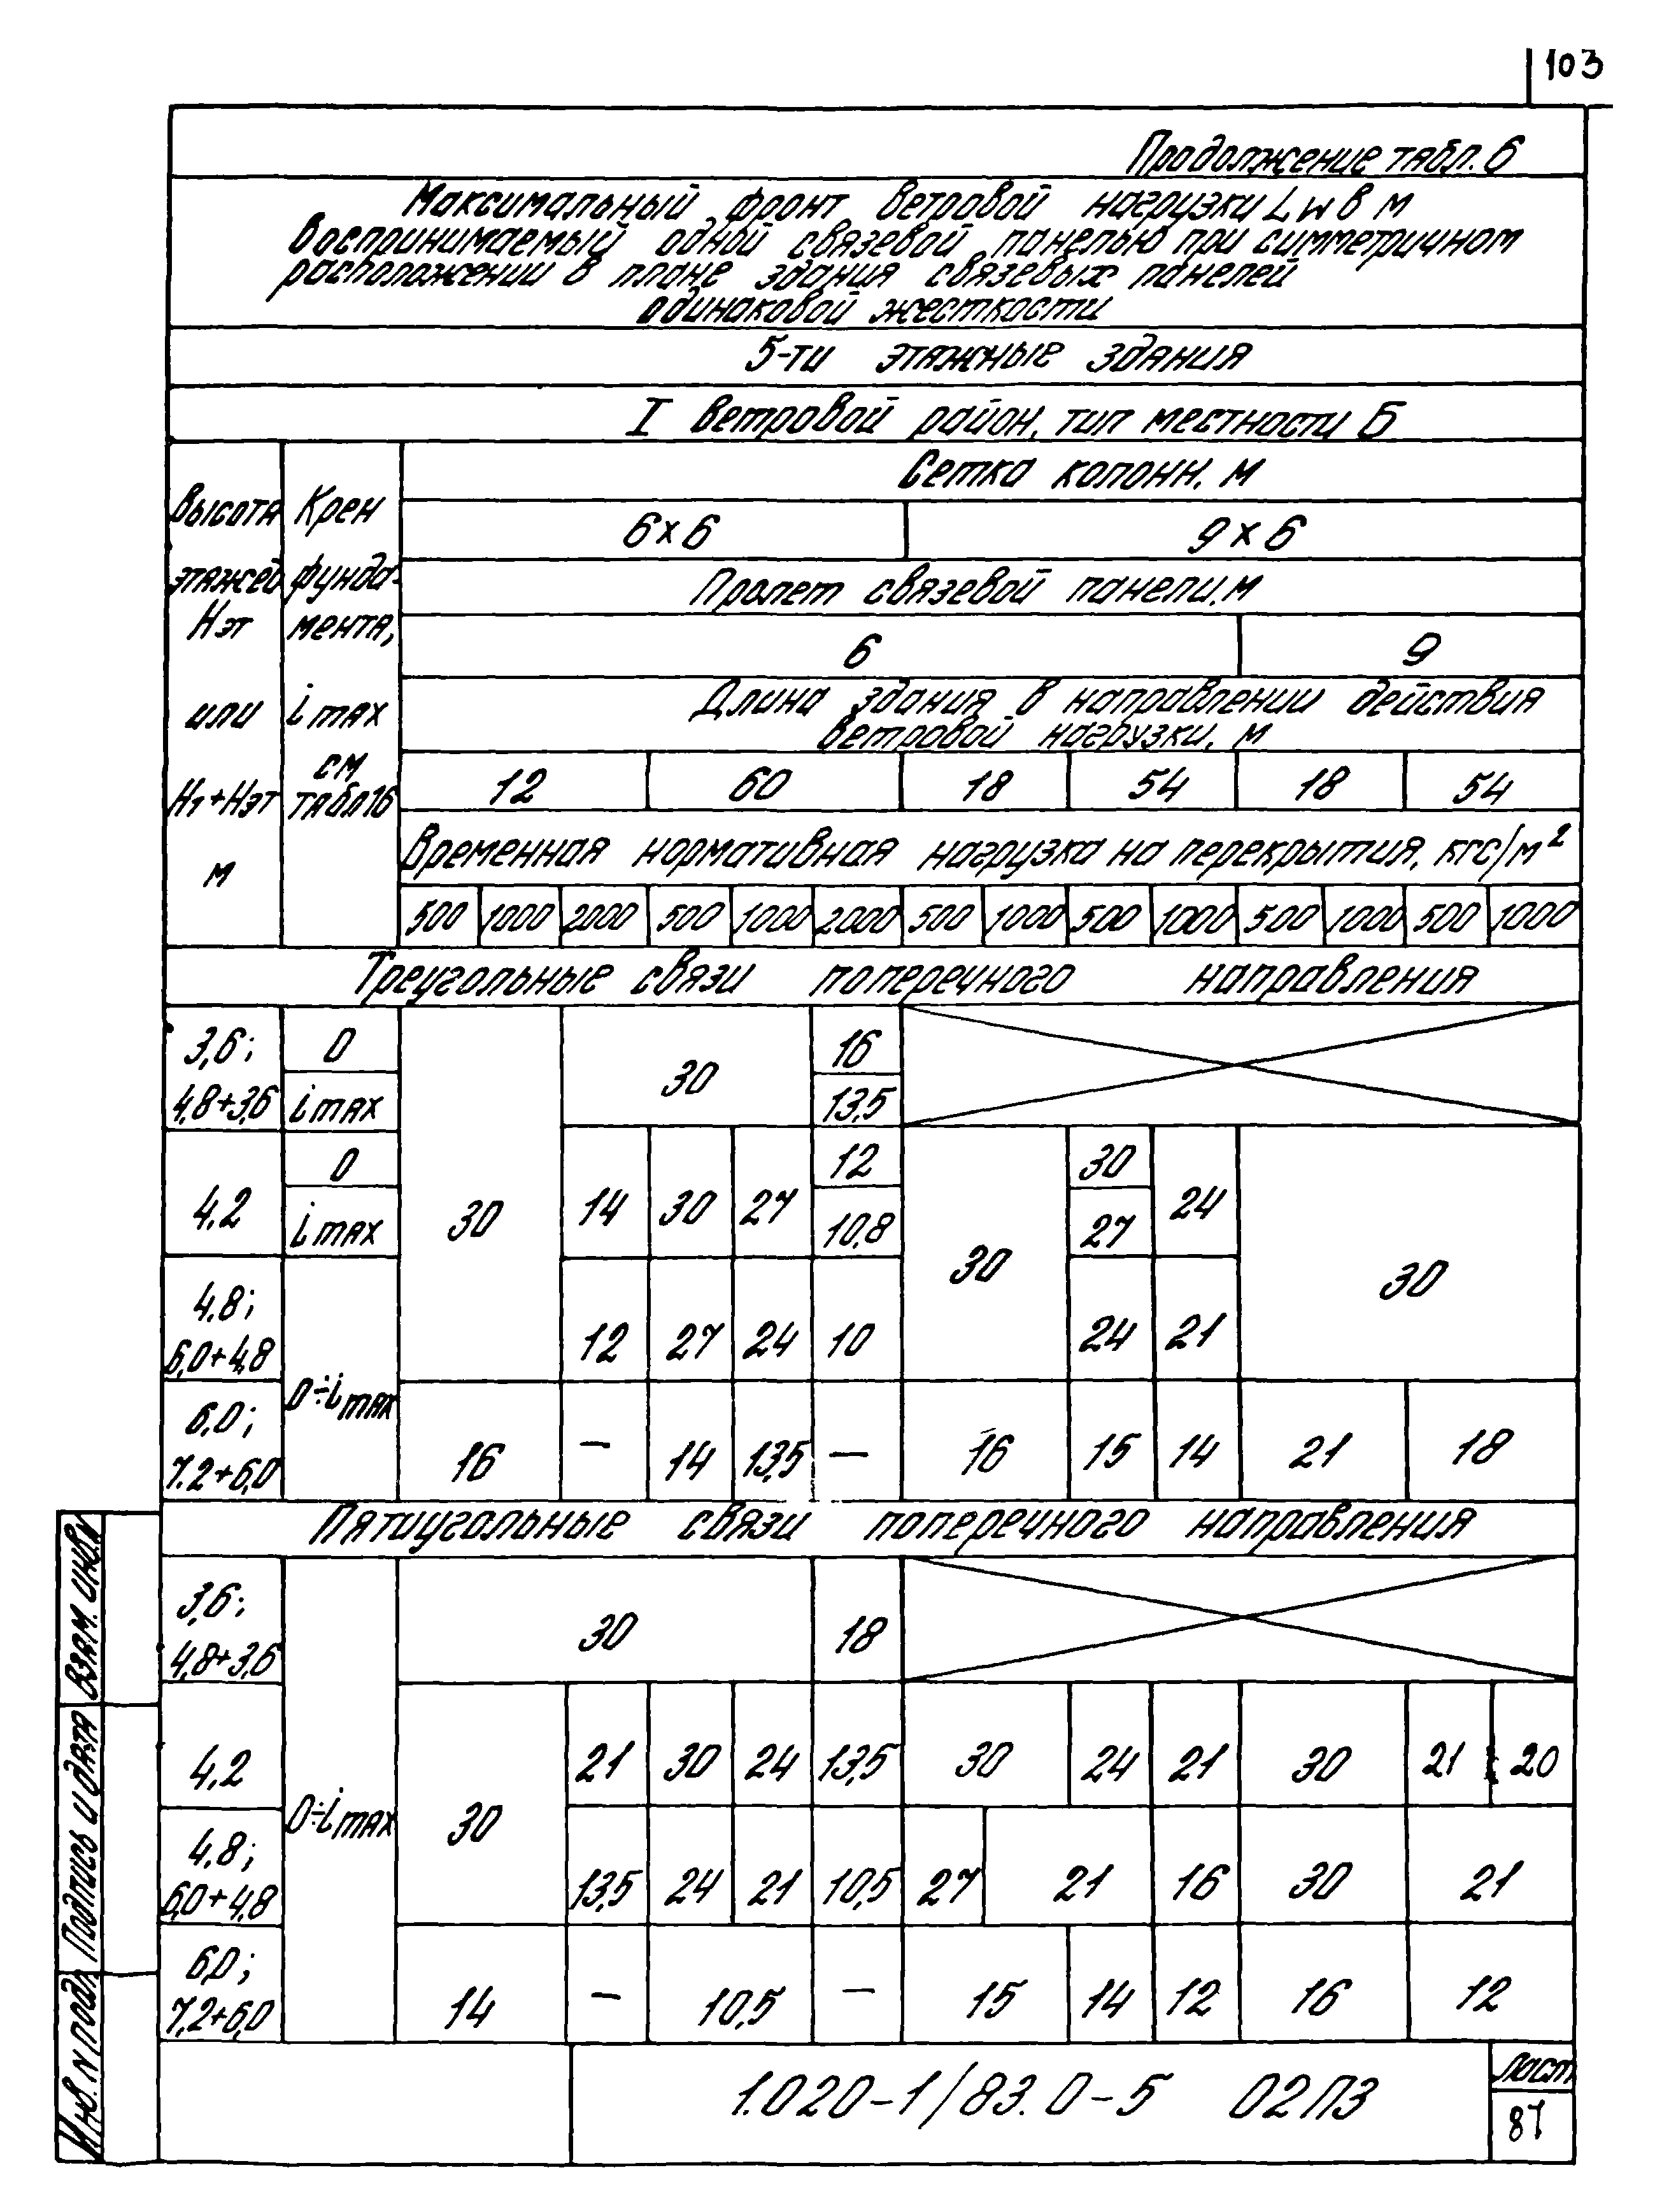 103
Продолжение табл. 6
Максимальный фронт ветровой нагрузки Lw в м
воспринимаемый одной связевой панелью при симметричном
расположении в плане здания связевых панелей
одинаковой жесткости
5-ти этажные здания
I ветровой район, тип местности Б
Высота этажей Нэт или Н1+Нэт м
Крен фунда-мента, i max см табл 16
Сетка колонн, м
6×6 9×6
Пролет связевой панели, м
6 9
Длина здания в направлении действия
ветровой нагрузки, м
12 60 18 54 18 54
Временная нормативная нагрузка на перекрытия, кгс/м²
500 1000 2000 500 1000 2000 500 1000 500 1000 500 1000 500 1000
Треугольные связи поперечного направления
3,6; 0 30 16
4,8+3,6 i max 13,5
0 12 30
4,2 30 14 30 27 24
i max 10,8 27
30 30
4,8;
6,0+4,8 12 27 24 10 24 21
0÷i max
6,0;
7.2+6,0 16 – 14 13,5 – 16 15 14 21 18
Пятиугольные связи поперечного направления
3,6;
4,8+3,6 30 18
4,2 21 30 24 13,5 30 24 21 30 21 20
0÷i max 30
4,8;
6,0+4,8 13,5 24 21 10,5 27 21 16 30 21
6,0;
7,2+6,0 14 – 10,5 – 15 14 12 16 12
1.020-1/83. 0-5 02ПЗ
Лист
87
Взам. инв. N
Подпись и дата
Инв. N подл